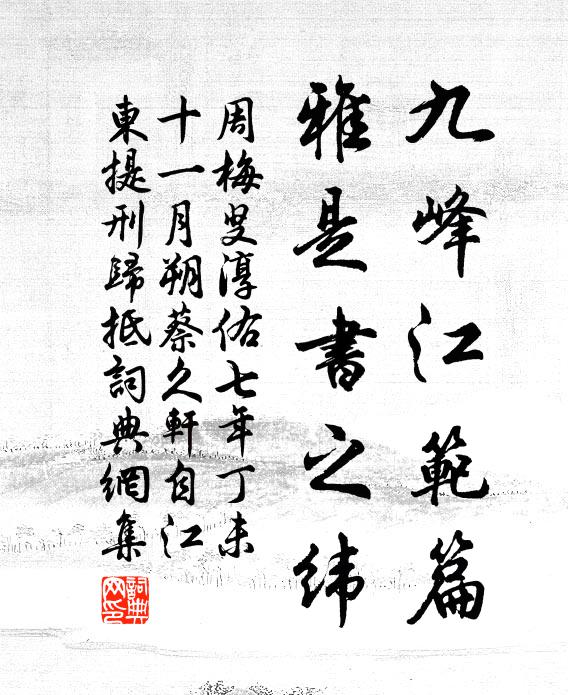 九峰江範篇
雅是書之緯
周梅叟淳佑七年丁未
十一月朔蔡久軒自江
東提刑歸抵詞典網集
詞典
网印